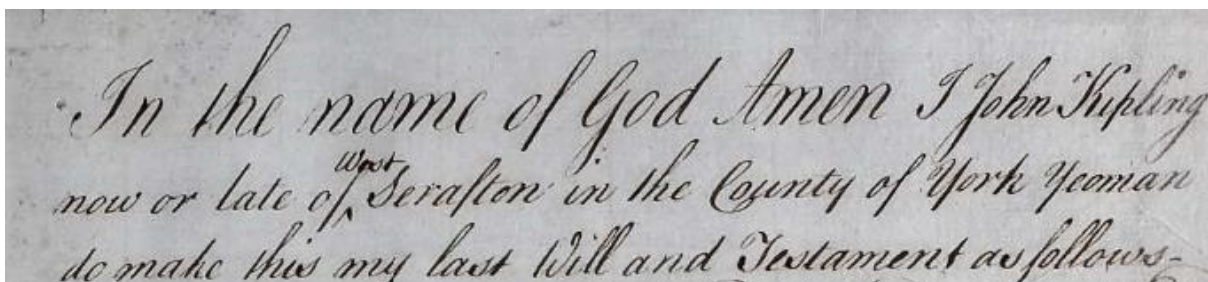 In the name of God Amen I John Kipling
now or late of ^West Scrafton in the County of York Yeoman
do make this my last Will and Testament as follows-